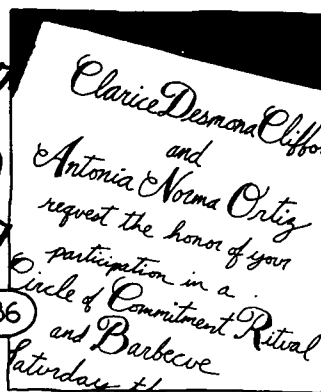 Clarice Desmona Cliffo
and
Antonia Norma Ortiz
request the honor of your
participation in a
Circle of Commitment Ritual
and Barbecue
Saturday th
36